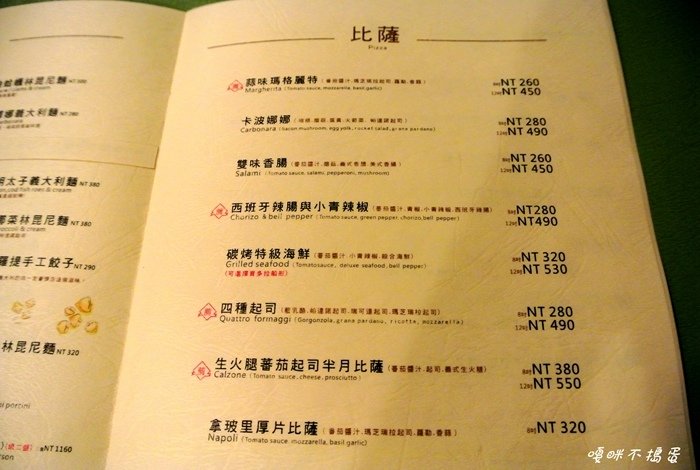 比薩
Pizza
蒜味瑪格麗特(番茄醬汁.瑪芝瑞拉起司.羅勒.香蒜)
Margherita (Tomato sauce, mozzarella, basil, garlic)
8吋NT 260
12吋NT 450
卡波娜娜
Carbonara (bacon,mushroom, egg yolk, rocket salad, grana pardano)
8吋NT 280
12吋NT 490
雙味香腸(番茄醬汁.蘑菇.義式香腸.美式香腸)
Salami (Tomato sauce, salami, pepperoni, mushroom)
8吋NT 260
12吋NT 450
西班牙辣腸與小青辣椒(番茄醬汁.青椒.小青辣椒.西班牙辣腸)
Chorizo & bell pepper (Tomato sauce, green pepper, chorizo, bell pepper)
8吋NT280
12吋NT490
碳烤特級海鮮(番茄醬汁.小青辣椒.綜合海鮮)
Grilled seafood (Tomatosauce, deluxe seafood, bell pepper)
(可選擇賽多拉船形)
8吋NT 320
12吋NT 530
四種起司(藍乳酪.帕達諾起司.瑞可達起司.瑪芝瑞拉起司)
Quattro formaggi (Gorgonzola, grana pardano, ricotte, mozzarella)
8吋NT 280
12吋NT 490
生火腿蕃茄起司半月比薩(番茄醬汁.起司.義式生火腿)
Calzone (Tomain sauce, cheese, prosciutto)
8吋NT 380
12吋NT 550
拿玻里厚片比薩(番茄醬汁.瑪芝瑞拉起司.羅勒.香蒜)
Napoli (Tomato sauce, mozzarella, basil, garlic)
8吋NT 320
林昆尼麵NT 380
義大利麵NT 280
太子義大利麵NT 380
菜林昆尼麵NT 380
羅提手工餃子NT 290
林昆尼麵NT 320
porcini
NT1160
嘎咪不搗蛋